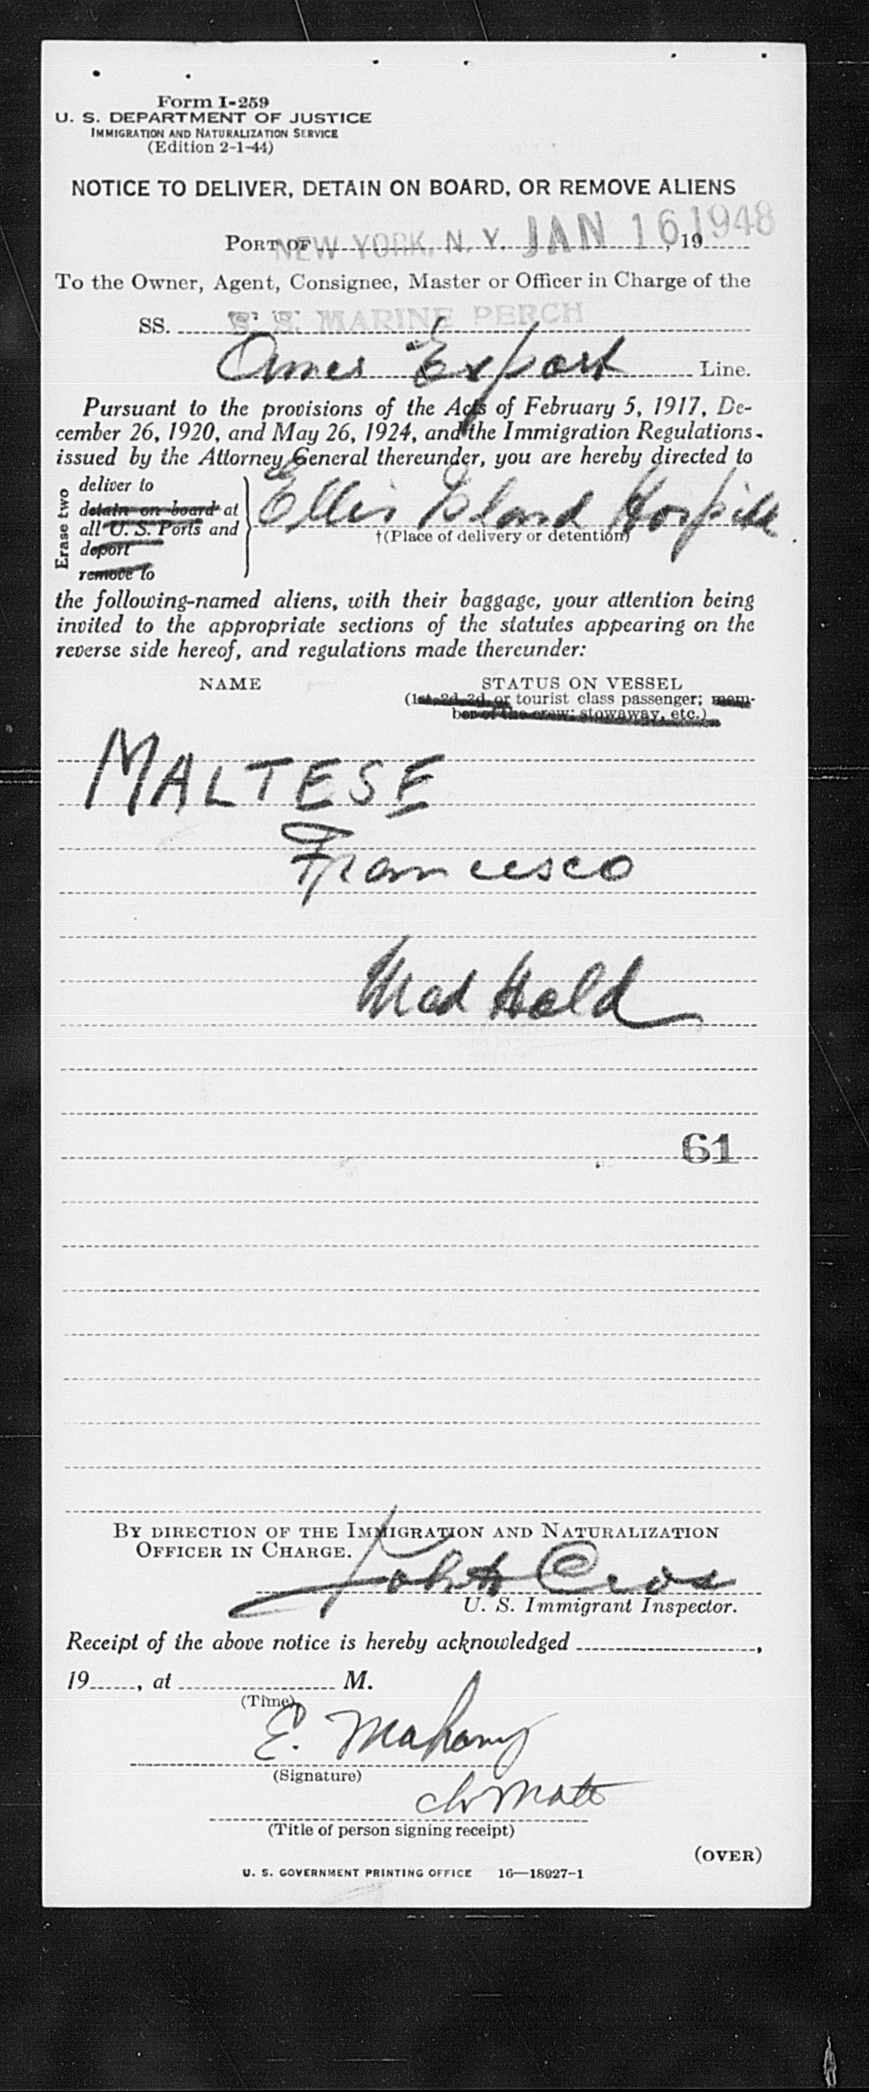 Form I-259
U. S. DEPARTMENT OF JUSTICE
IMMIGRATION AND NATURALIZATION SERVICE
(Edition 2-1-44)
NOTICE TO DELIVER, DETAIN ON BOARD, OR REMOVE ALIENS
PORT OF NEW YORK, N. Y. JAN 16 1948, 19
To the Owner, Agent, Consignee, Master or Officer in Charge of the
SS. S. S. MARINE PERCH
Amer Export Line.
Pursuant to the provisions of the Acts of February 5, 1917, De-
cember 26, 1920, and May 26, 1924, and the Immigration Regulations
issued by the Attorney General thereunder, you are hereby directed to
Erase two
deliver to
detain on board at
all U. S. Ports and
deport
remove to
Ellis Island Hospital
†(Place of delivery or detention)
the following-named aliens, with their baggage, your attention being
invited to the appropriate sections of the statutes appearing on the
reverse side hereof, and regulations made thereunder:
NAME STATUS ON VESSEL
(1st, 2d, 3d, or tourist class passenger; mem-
ber of the crew; stowaway, etc.)
MALTESE
Francesco
Med Held
61
BY DIRECTION OF THE IMMIGRATION AND NATURALIZATION
OFFICER IN CHARGE.
U. S. Immigrant Inspector.
Receipt of the above notice is hereby acknowledged ,
19 , at M.
(Time)
E. Mahony
(Signature)
(Title of person signing receipt)
(OVER)
U. S. GOVERNMENT PRINTING OFFICE 16—18927-1